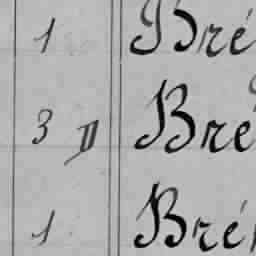 1 Bré
3 Bré
1 Bré